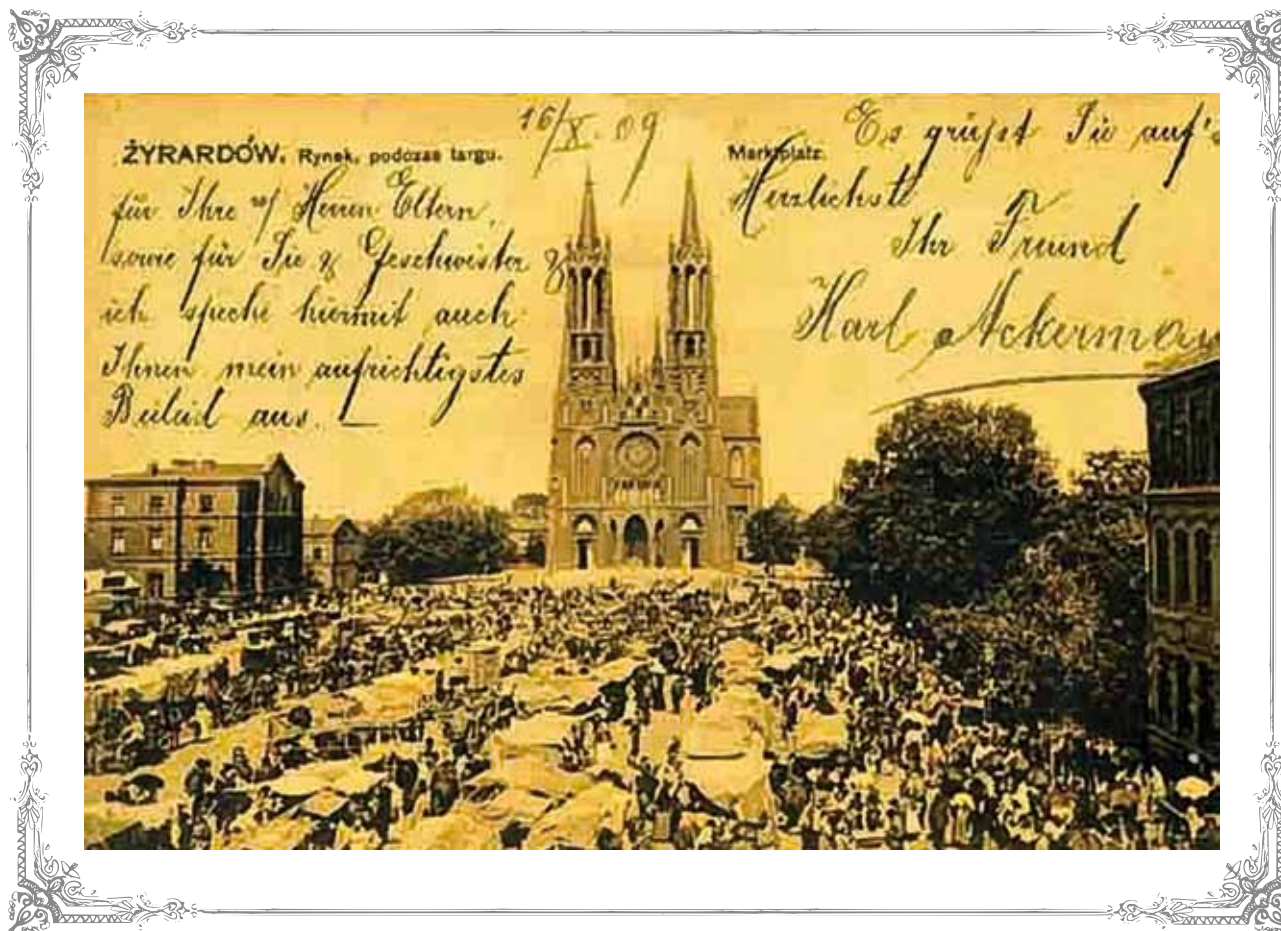 16/X. 09
ŻYRARDÓW. Rynek, podczas targu.
für Ihre Herren Eltern,
sowie für Sie & Geschwister &
ich speche hiermit auch
Ihnen mein aufrichtigstes
Beileid aus. —
Marktplatz.
Es grüßt Sie auf's
Herzlichste
Ihr Freund
Karl Ackerman